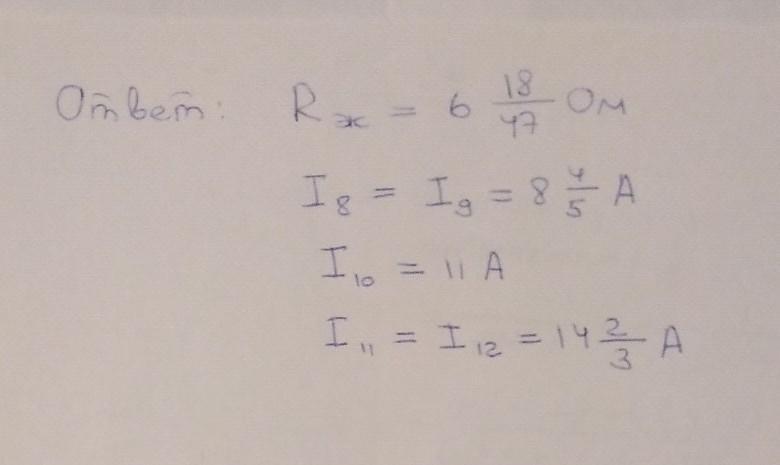 Ответ: Rж = 6 18/47 Ом
I8 = I9 = 8 4/5 А
I10 = 11 А
I11 = I12 = 14 2/3 А